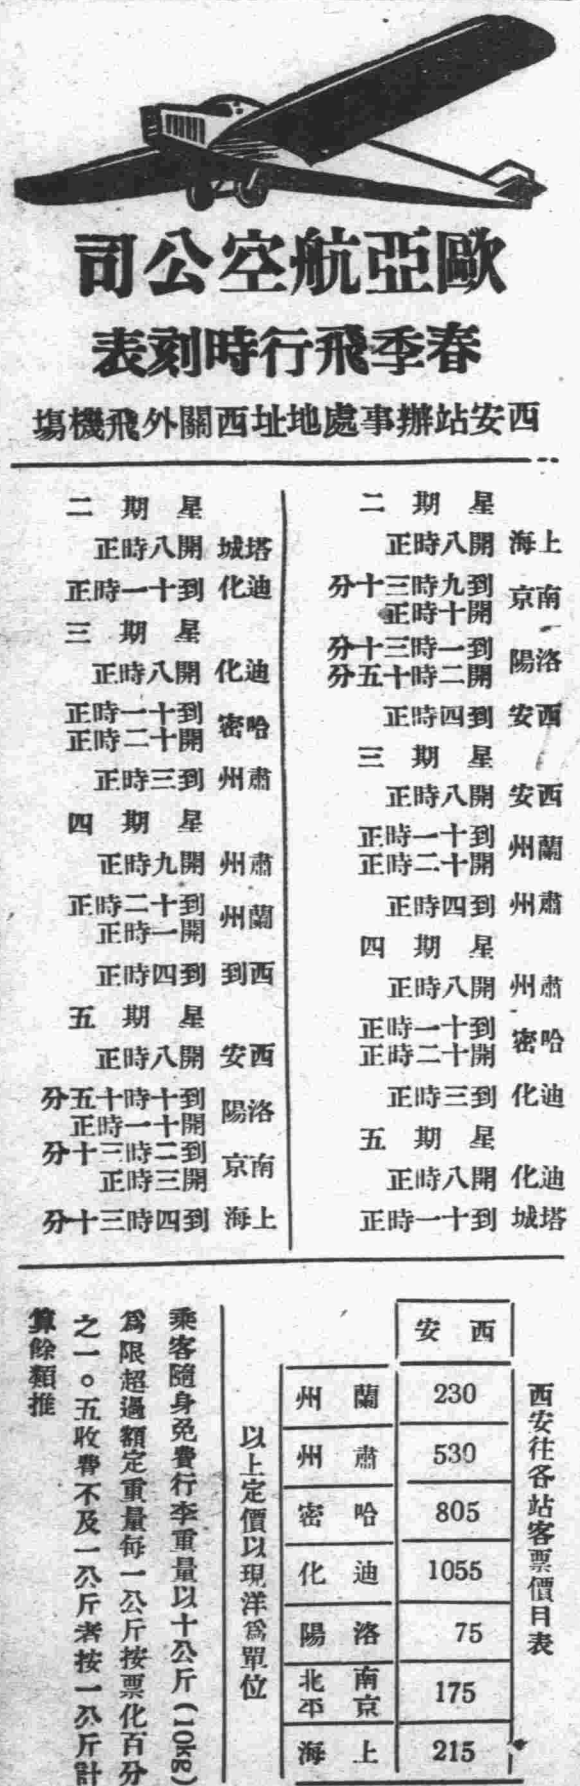 歐亞航空公司
春季飛行時刻表
西安站辦事處地址西關外飛機塲
星期二
上海 開八時正
南京 到九時三十分
開十時正
洛陽 到一時三十分
開二時十五分
西安 到四時正
星期三
西安 開八時正
蘭州 到十一時正
開十二時正
肅州 到四時正
星期四
肅州 開八時正
哈密 到十一時正
開十二時正
迪化 到三時正
星期五
迪化 開八時正
塔城 到十一時正
星期二
塔城 開八時正
迪化 到十一時正
星期三
迪化 開八時正
哈密 到十一時正
開十二時正
肅州 到三時正
星期四
肅州 開九時正
蘭州 到十二時正
開一時正
西到 到四時正
星期五
西安 開八時正
洛陽 到十時十五分
開十一時正
南京 到二時三十分
開三時正
上海 到四時三十分
西安往各站客票價目表
西安
蘭州 230
肅州 530
哈密 805
迪化 1055
洛陽 75
南京 北平 175
上海 215
以上定價以現洋爲單位
乘客隨身免費行李重量以十公斤(10kg)
爲限超過額定重量每一公斤按票化百分
之一○五收費不及一公斤者按一公斤計
算餘類推